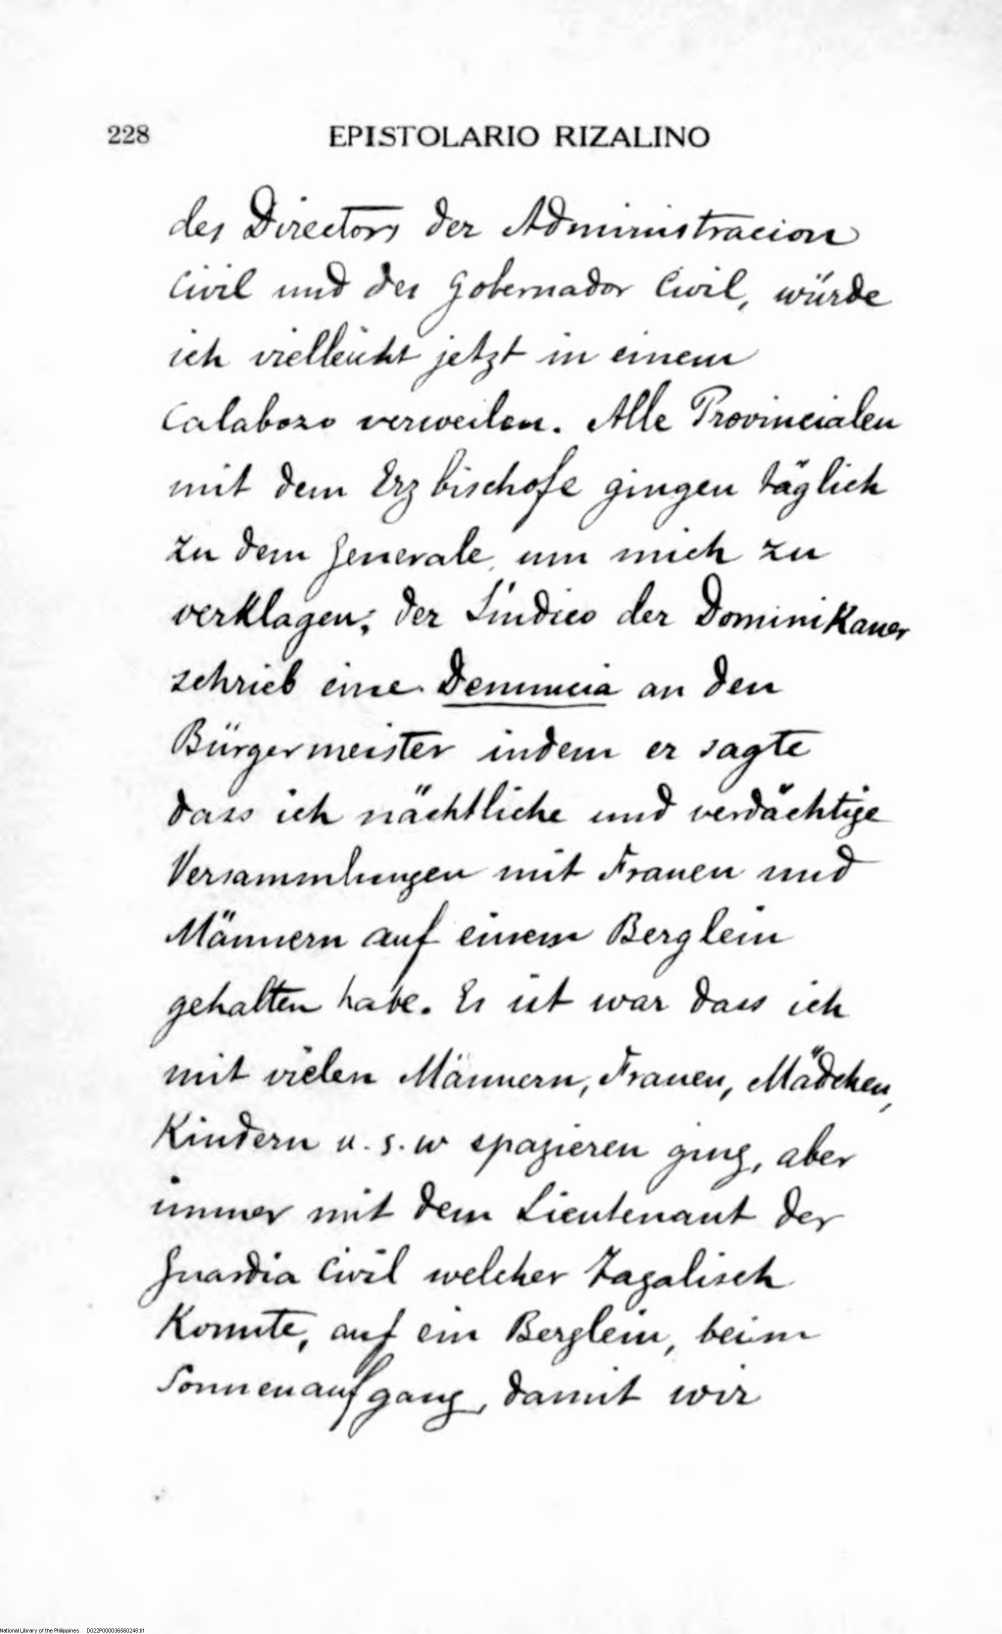 228
EPISTOLARIO RIZALINO
des Directors der Administracion
Civil und des Gobernador Civil, würde
ich vielleicht jetzt in einem
Calabozo verweilen. Alle Provincialen
mit dem Erzbischofe gingen täglich
zu dem Generale, um mich zu
verklagen; der Síndico der Dominikaner
schrieb eine Denuncia an den
Bürgermeister indem er sagte
dass ich nächtliche und verdächtige
Versammlungen mit Frauen und
Männern auf einem Berglein
gehalten habe. Es ist war dass ich
mit vielen Männern, Frauen, Mädchen,
Kindern u. s. w spazieren ging, aber
immer mit dem Lieutenant der
Guardia Civil welcher Tagalisch
Konnte, auf ein Berglein, beim
Sonnenaufgang, damit wir
National Library of the Philippines